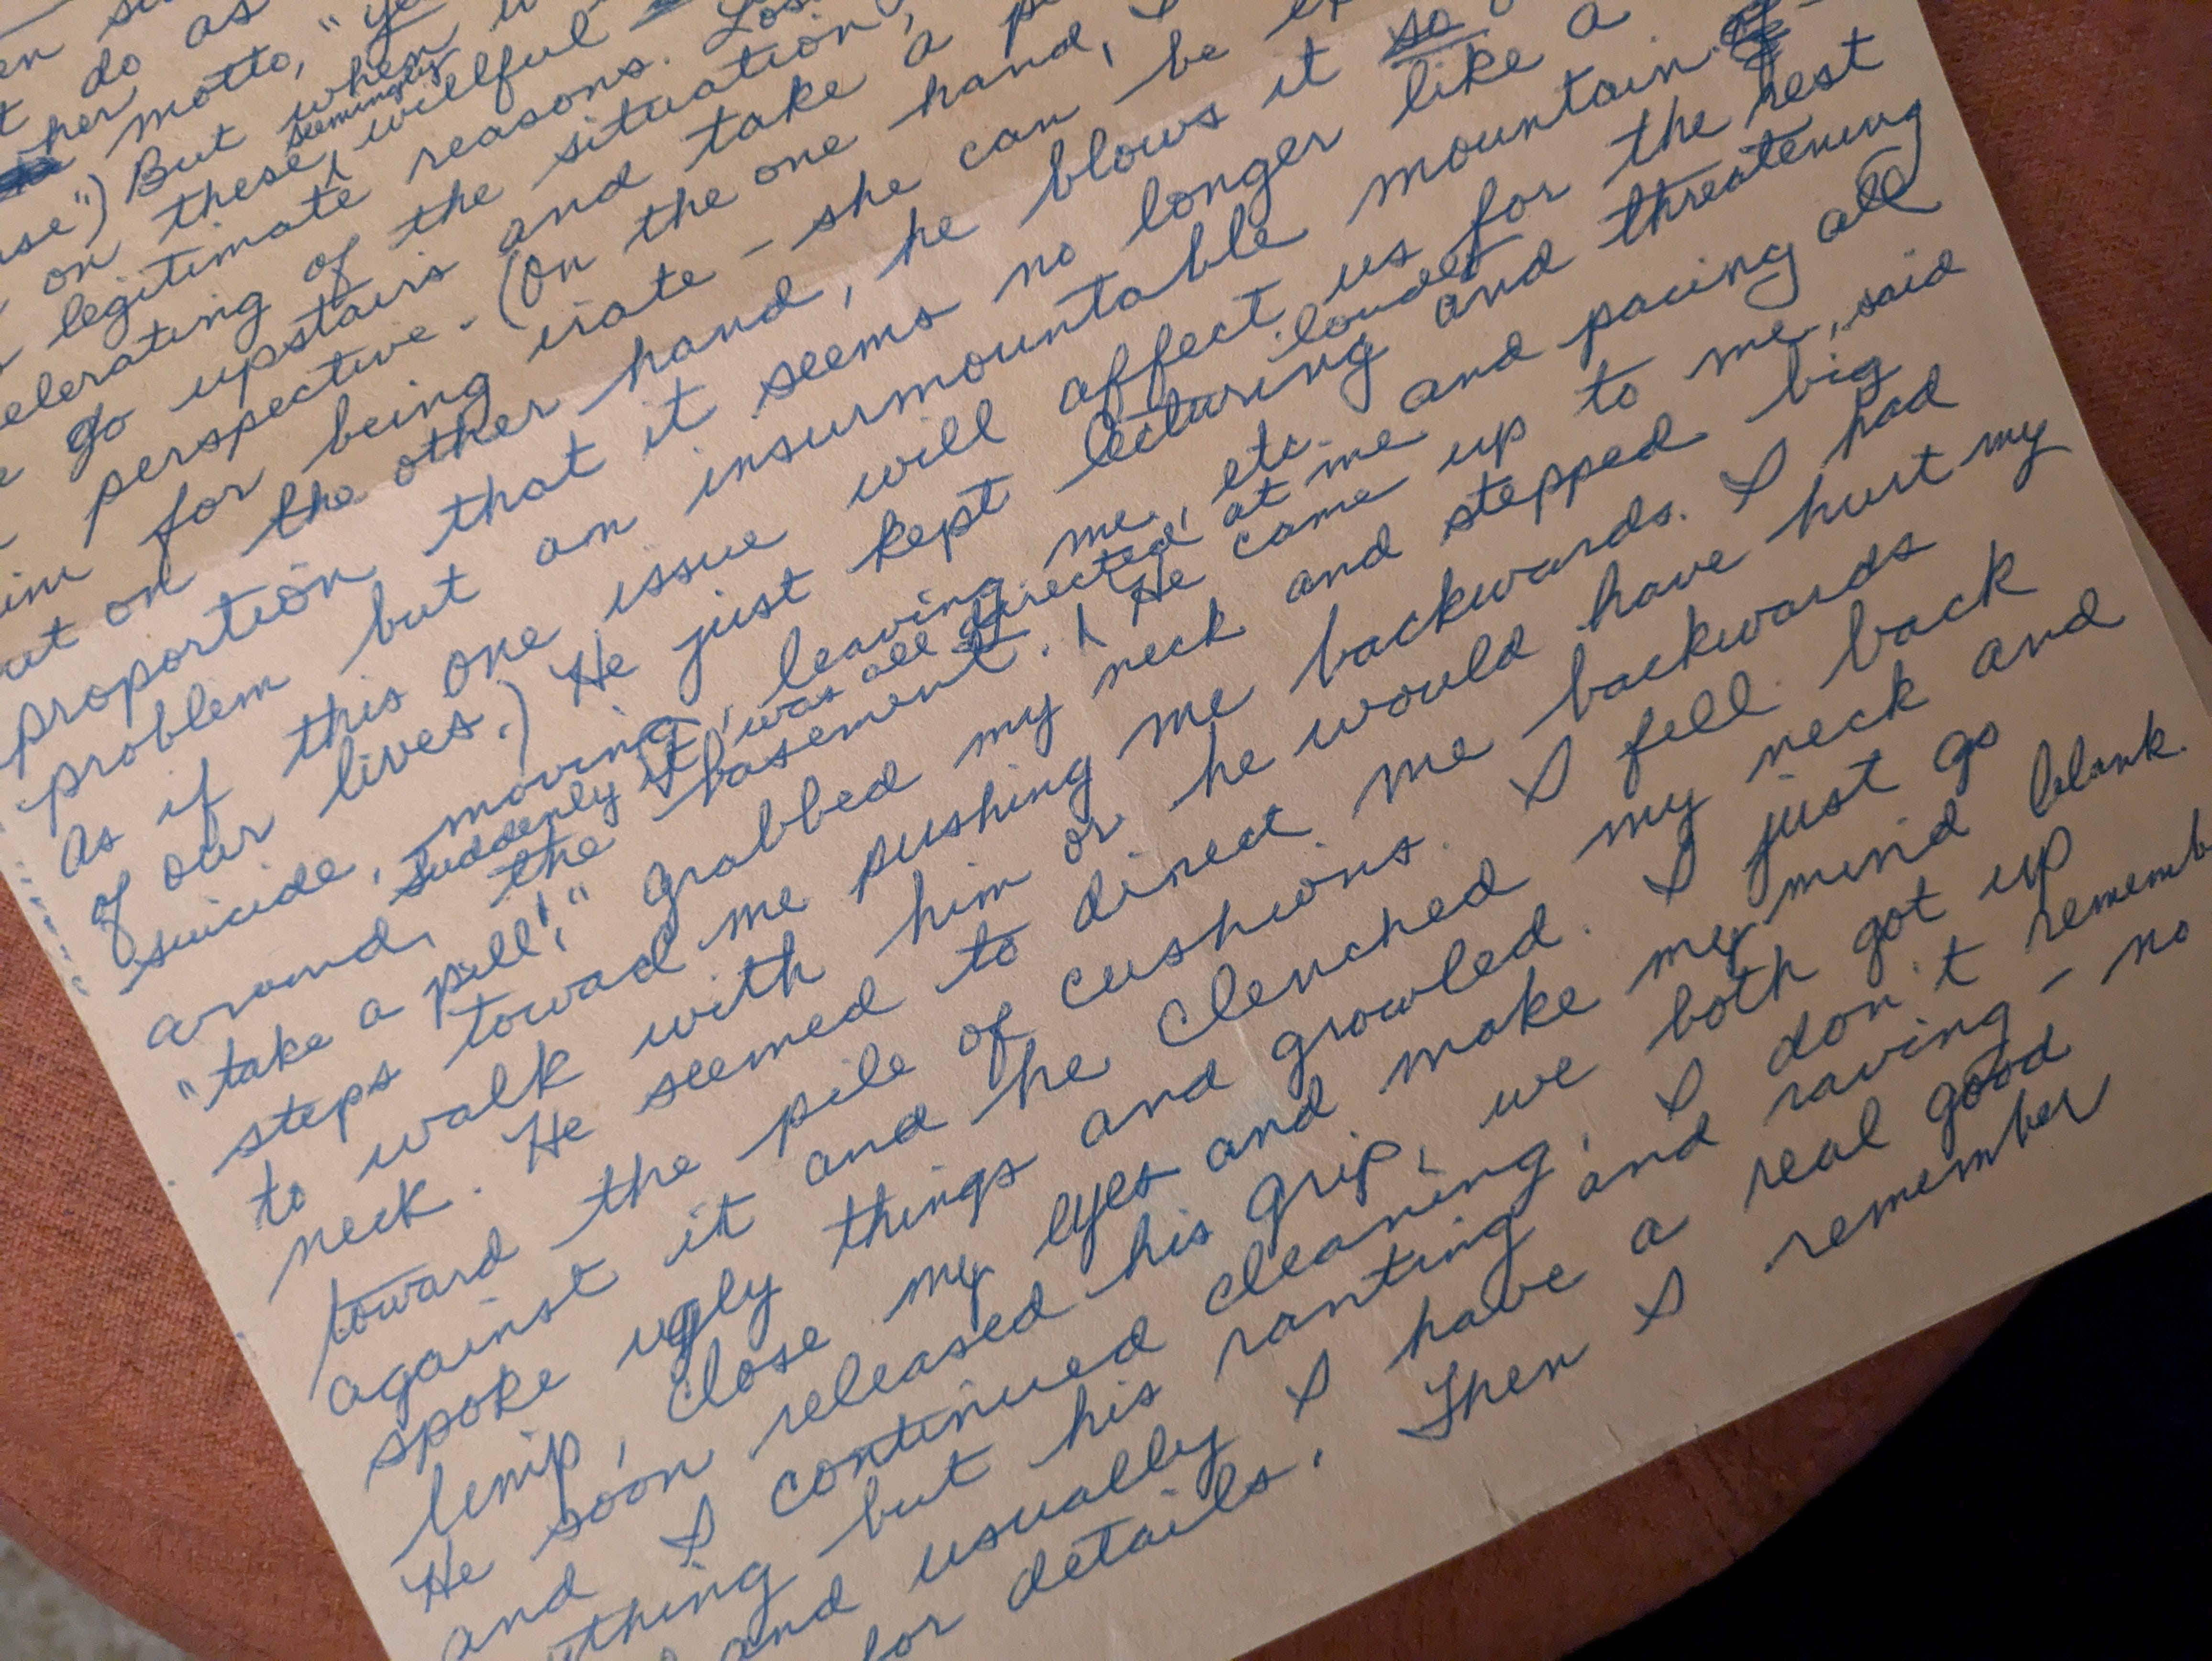 do as
her motto, "ye
") But when
on these, seemingly willful
legitimate reasons. Los
of the situation,
go upstairs and take a p
perspective. (On the one hand,
for being irate - she can be
on the other hand, he blows it so
proportion that it seems no longer like a
problem but an insurmountable mountain.
As if this one issue will affect us for the rest
of our lives.) He just kept lecturing louder and threatening
suicide, moving, leaving me, etc. and pacing all
around the basement. Suddenly it was all directed at me. He came up to me, said
"take a pill!" grabbed my neck and stepped big
steps toward me pushing me backwards. I had
to walk with him or he would have hurt my
neck. He seemed to direct me backwards
toward the pile of cushions. I fell back
against it and he clenched my neck and
spoke ugly things and growled. I just go
limp, close my eyes and make my mind blank.
He soon released his grip, we both got up
and I continued cleaning, I don't rememb
thing but his ranting and raving - no
and usually I have a real good
for details. Then I remember